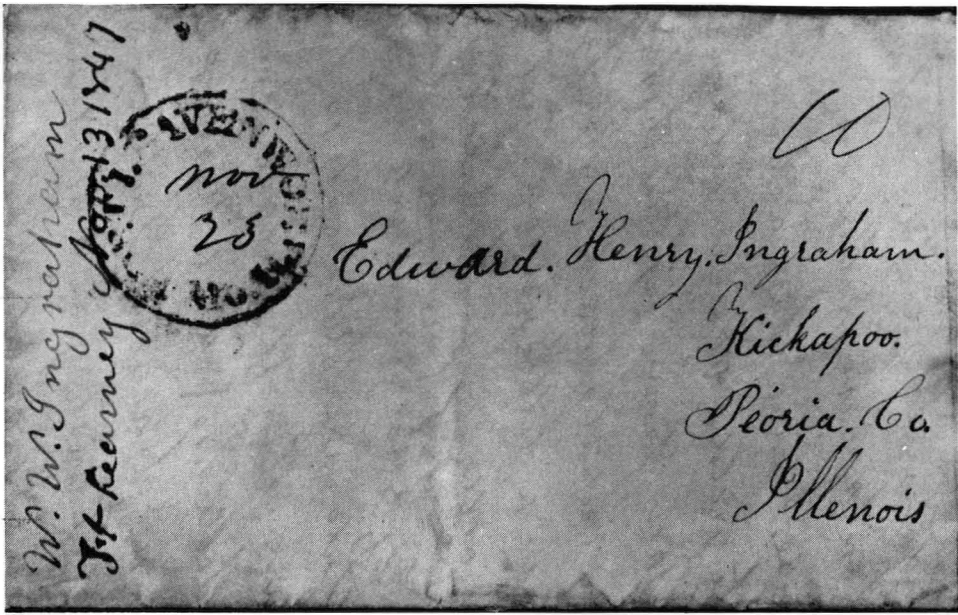 W. W. Ingraham
Ft Kearney Nov 13 1847
nov
25
10
Edward. Henry. Ingraham.
Kickapoo.
Peoria. Co.
Illenois